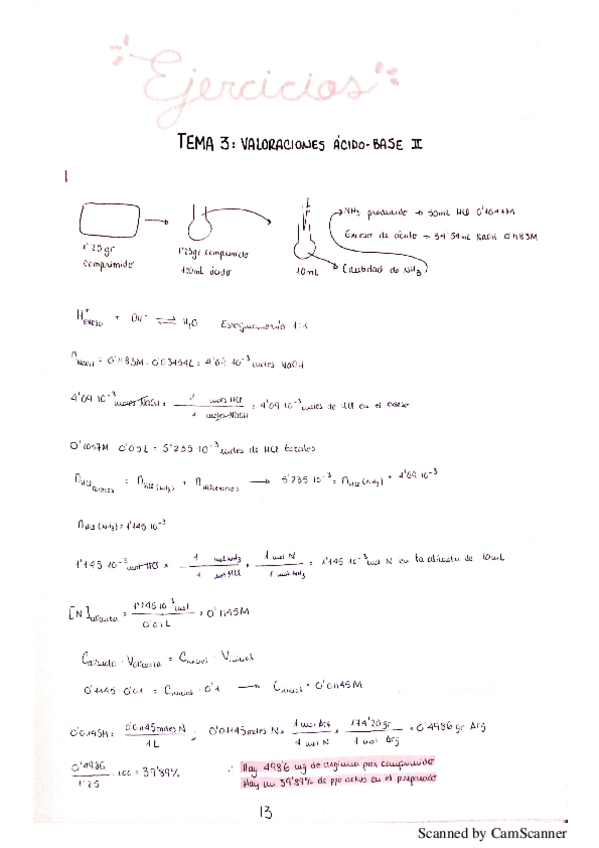 Ejercicios
TEMA 3: VALORACIONES ÁCIDO-BASE II
1
1'25gr
comprimido
1'25gr comprimido
100mL ácido
10mL
NH3 producido → 50mL HCl 0'1047M
Exceso de ácido → 34'54mL NaOH 0'1183M
Cantidad de NH3
H+ exceso + OH- ⇌ H2O Estequiometría 1:1
nNaOH = 0'1183M · 0'03454L = 4'09 10-3 moles NaOH
4'09 10-3 moles NaOH × 1 moles HCl / 1 moles NaOH = 4'09 10-3 moles de HCl en el exceso
0'1047M 0'05L = 5'235 10-3 moles de HCl totales
nHCl totales = nHCl (NH3) + nHCl exceso → 5'235 10-3 = nHCl (NH3) + 4'09 10-3
nHCl (NH3) = 1'145 10-3
1'145 10-3 mol HCl × 1 mol NH3 / 1 mol HCl × 1 mol N / 1 mol NH3 = 1'145 10-3 mol N en la alícuota de 10mL
[N] alícuota = 1'145 10-3 mol / 0'01L = 0'1145M
· V = C · V
0'1145 0'01 = C · 0'1 → C = 0'01145M
0'01145M = 0'01145 moles N / 1L ; 0'01145 moles N × 1 mol Arg / 4 mol N × 174'20 gr / 1 mol Arg = 0'4986 gr Arg
0'4986 / 1'25 · 100 = 39'89%
∴ Hay 498'6 mg de arginina por comprimido
Hay un 39'89% de ppo activo en el preparado
13
Scanned by CamScanner